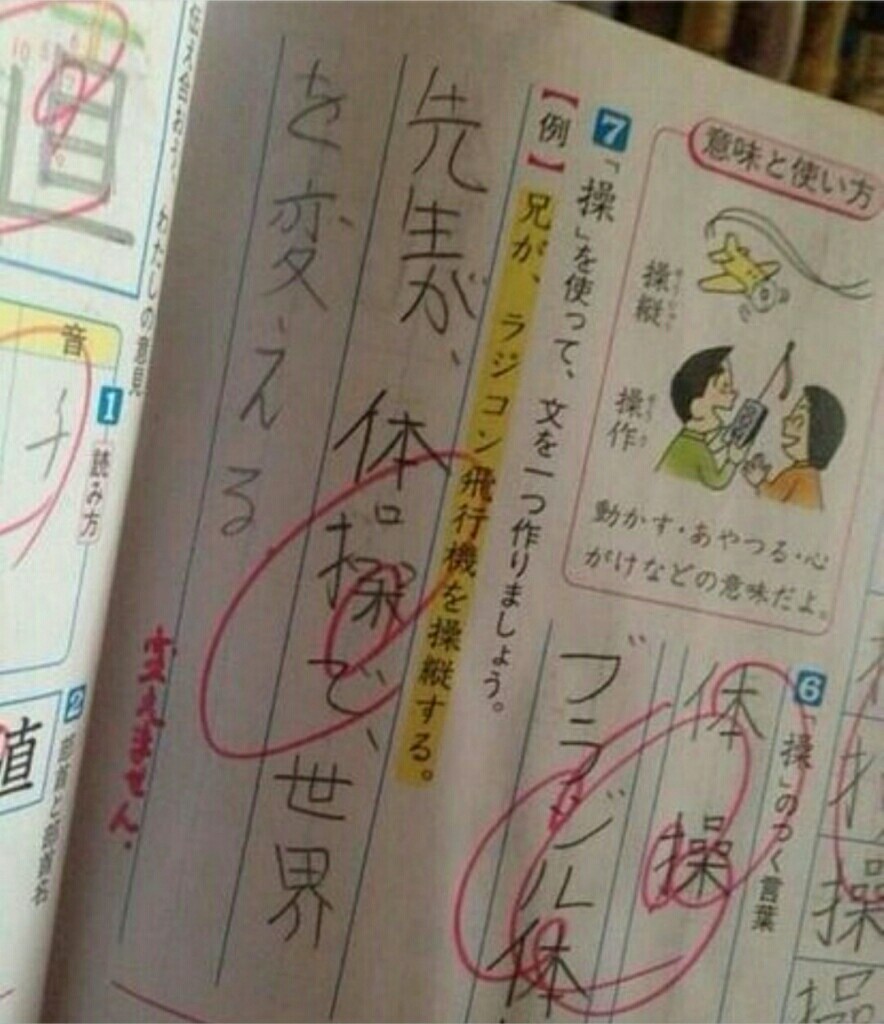 意味と使い方
操縦
そうじゅう
操作
そうさ
動かす・あやつる・心
がけなどの意味だよ。
6 「操」のつく言葉
体操
ブラジル体
7 「操」を使って、文を一つ作りましょう。
【例】兄が、ラジコン飛行機を操縦する。
先生が、体操で、世界
を変える
変えません。
わたしの意見
直
音
チ
1 読み方
2 部首と部首名
値
操